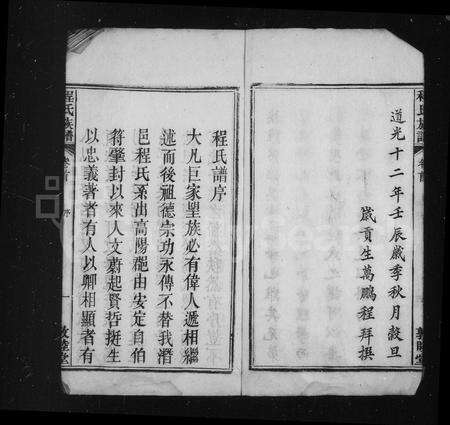 道光十二年壬辰歲季秋月穀旦
歲貢生萬鵬程拜撰
程氏族譜
卷首
敦睦堂
程氏譜序
大凡巨家聖族必有人遞相繼
述而後祖德宗功永傳不替我潛
邑程氏系出高陽郡由安定自伯
符肇封以來人文蔚起賢哲挺生
以忠義著者有人以卿相顯者有
程氏族譜
卷首
序
一
敦睦堂